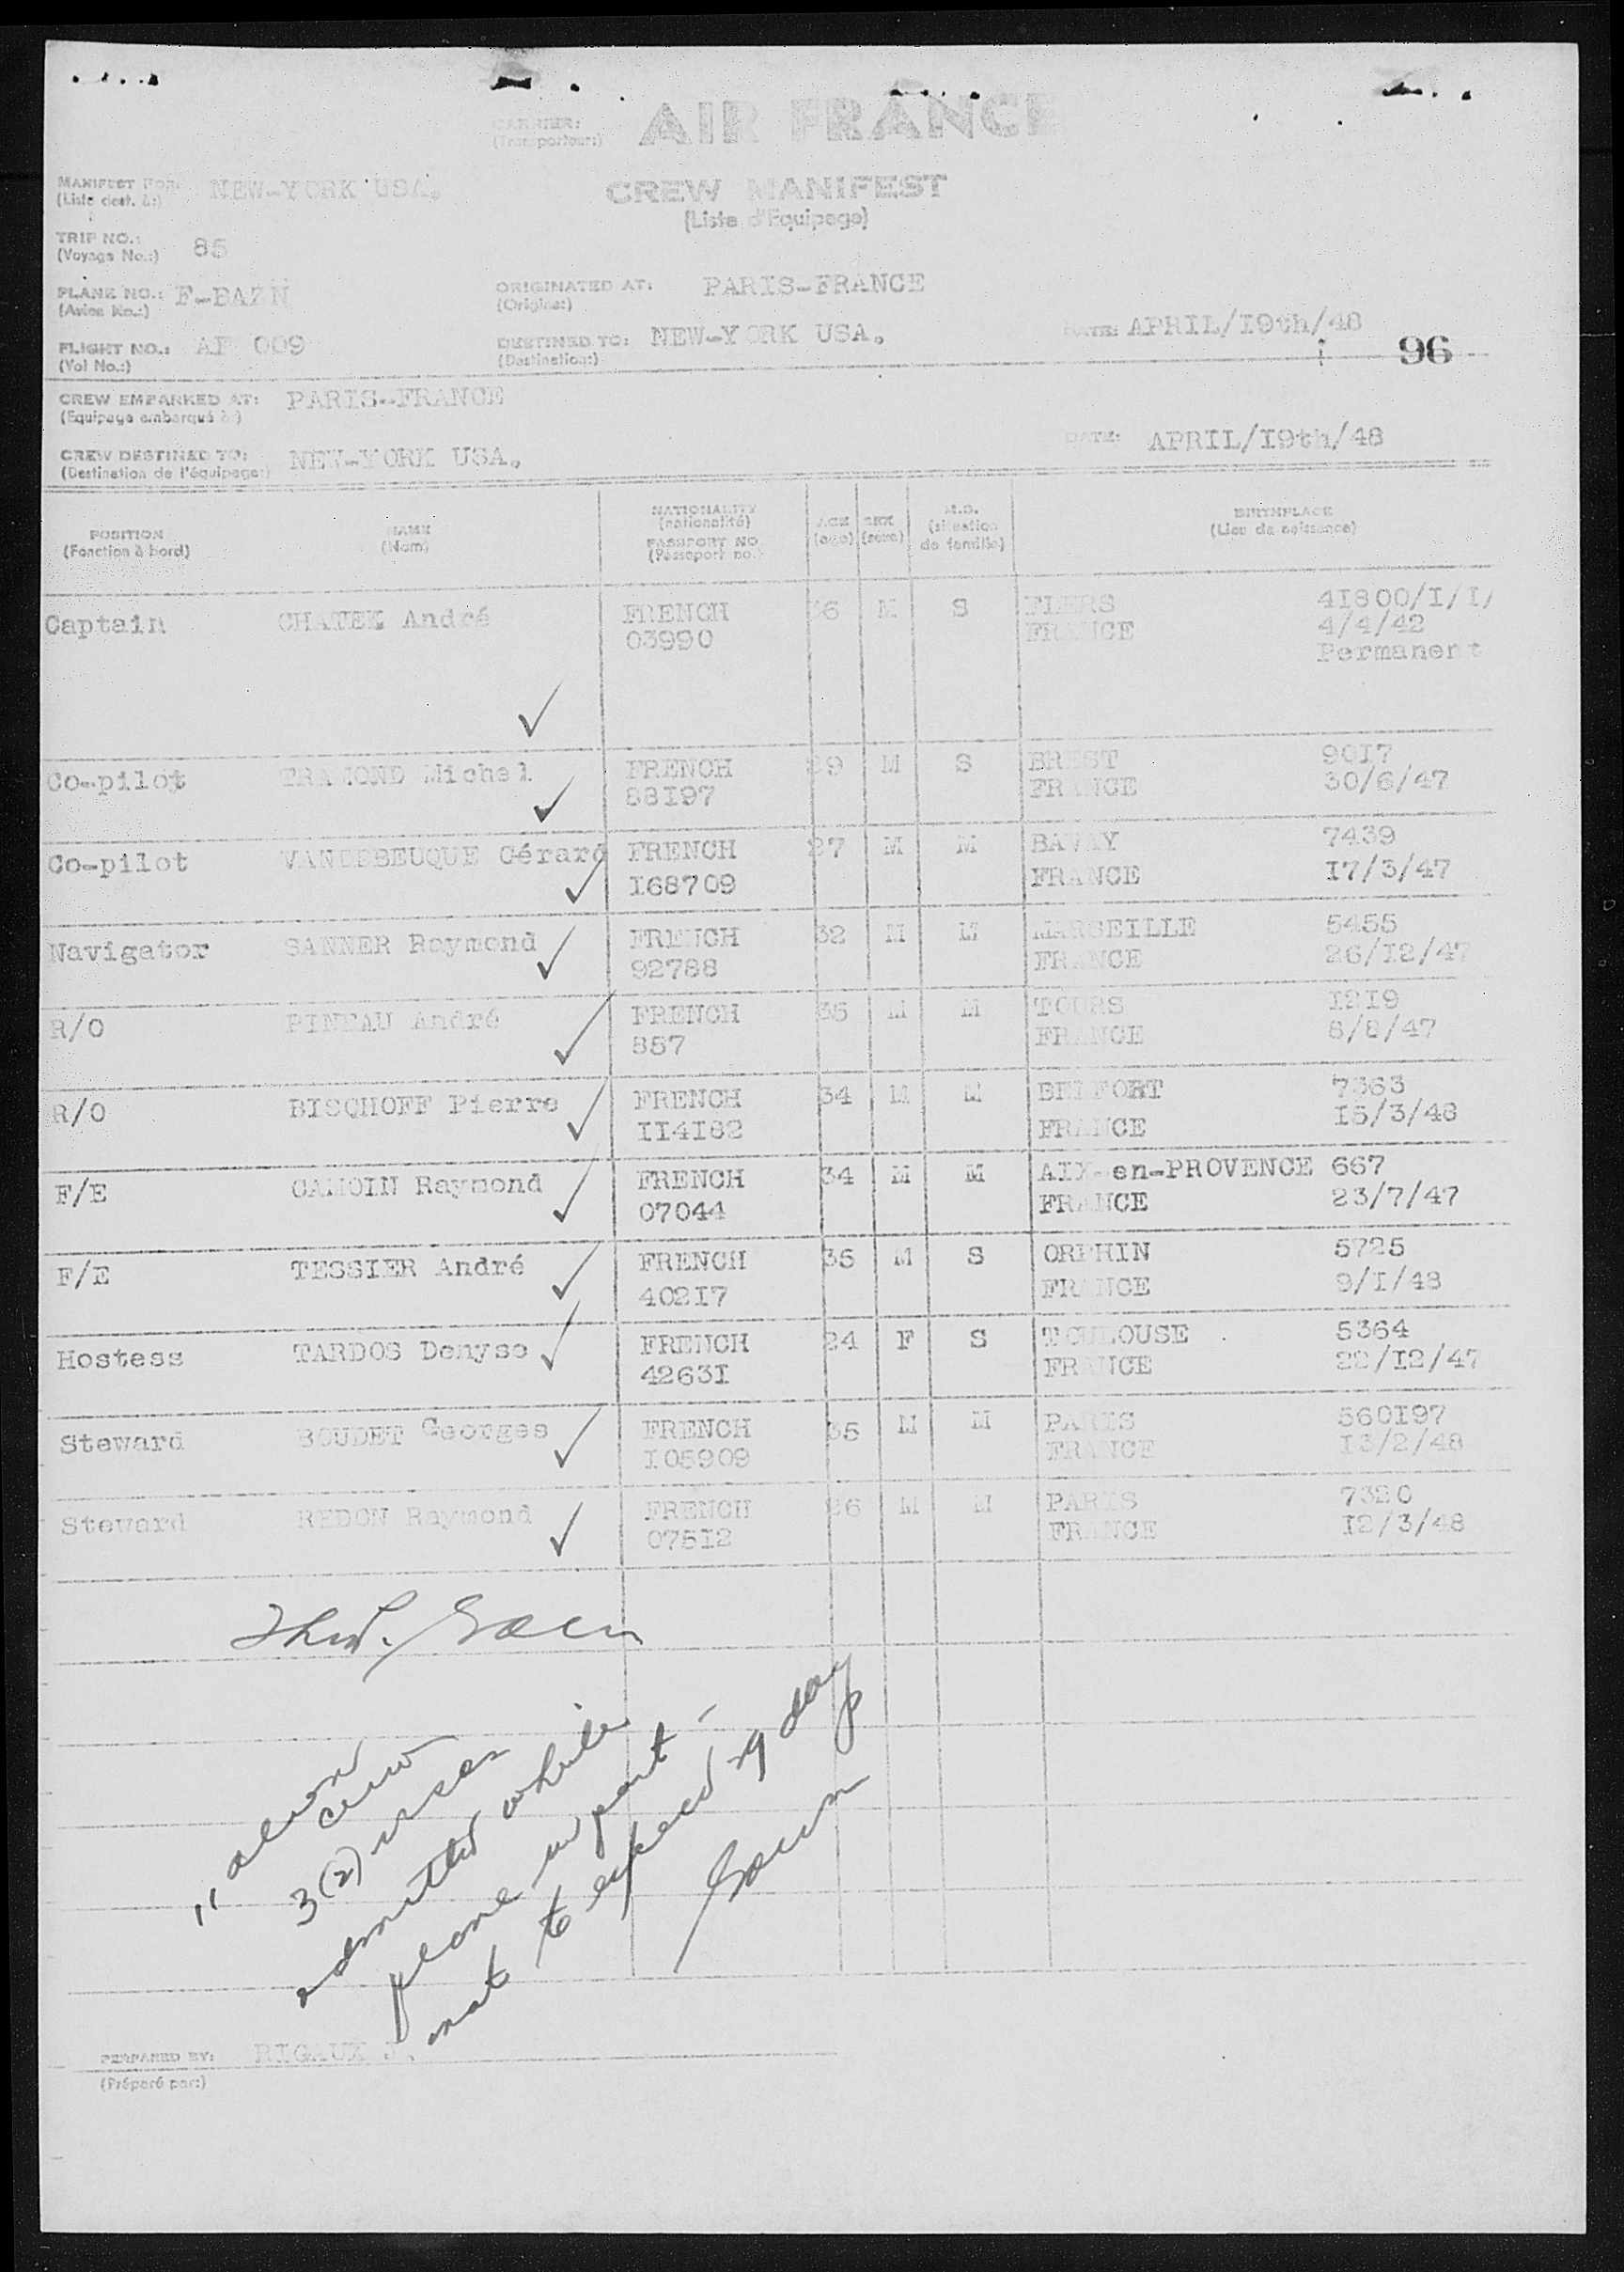 CARRIER: AIR FRANCE
(Transporteur:)
MANIFEST FOR: NEW-YORK USA. CREW MANIFEST
(Liste dest. à:) (Liste d'Equipage)
TRIP NO.: 85
(Voyage No.:)
PLANE NO.: F-BAZN ORIGINATED AT: PARIS-FRANCE
(Avion No.:) (Origine:)
FLIGHT NO.: AF 009 DESTINED TO: NEW-YORK USA. DATE: APRIL/I9th/48
(Vol No.:) (Destination:) 96
CREW EMBARKED AT: PARIS-FRANCE
(Equipage embarqué à:)
CREW DESTINED TO: NEW-YORK USA. DATE: APRIL/I9th/48
(Destination de l'équipage:)
POSITION NAME NATIONALITY AGE SEX M.S. BIRTHPLACE
(Fonction à bord) (Nom) (nationalité) (age) (sexe) (situation de famille) (Lieu de naissance)
PASSPORT NO
(Passeport no.)
Captain André FRENCH 36 M S FLERS 41800/I/I/
03990 FRANCE 4/4/42
Permanent
Co-pilot TRAMOND Michel FRENCH 29 M S BREST 90I7
88I97 FRANCE 30/6/47
Co-pilot Gérard FRENCH 27 M M BAVAY 7439
I68709 FRANCE I7/3/47
Navigator SANNER Raymond FRENCH 32 M M MARSEILLE 5455
92788 FRANCE 26/I2/47
R/O PINEAU André FRENCH 35 M M TOURS I2I9
857 FRANCE 8/8/47
R/O BISCHOFF Pierre FRENCH 34 M M BELFORT 7363
II4I82 FRANCE I5/3/48
F/E CAMOIN Raymond FRENCH 34 M M AIX-en-PROVENCE 667
07044 FRANCE 23/7/47
F/E TESSIER André FRENCH 35 M S ORPHIN 5725
402I7 FRANCE 9/I/48
Hostess TARDOS Denyse FRENCH 24 F S TOULOUSE 5364
4263I FRANCE 22/I2/47
Steward BOUDET Georges FRENCH 35 M M PARIS 560I97
I05909 FRANCE I3/2/48
Steward REDON Raymond FRENCH 26 M M PARIS 7320
075I2 FRANCE I2/3/48
11 alien
crew
3(2)
admitted while
plane in port -
not to exceed 29 days
PREPARED BY: RIGAUX J.
(Préparé par:)